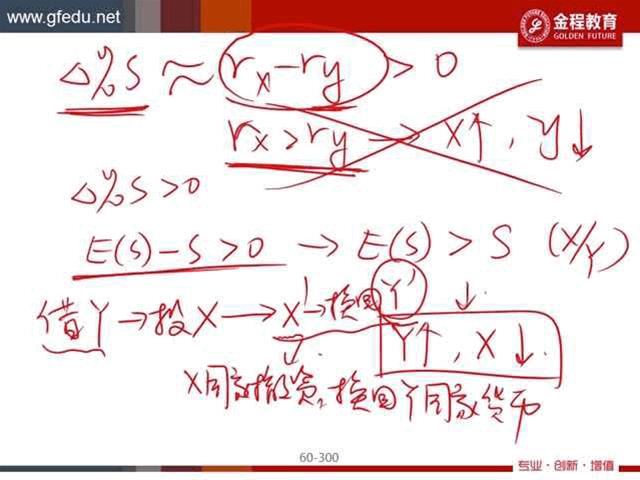 www.gfedu.net
金程教育
GOLDEN FUTURE
Δ%S ≈ rx-ry > 0
rx>ry → X↑, y↓
Δ%S>0
E(S)-S>0 → E(S)>S (X/Y)
借Y→投X→X'→换回Y'
↓
Y↑, X↓.
X国家撤资,换回Y国家货币
60-300
专业·创新·增值